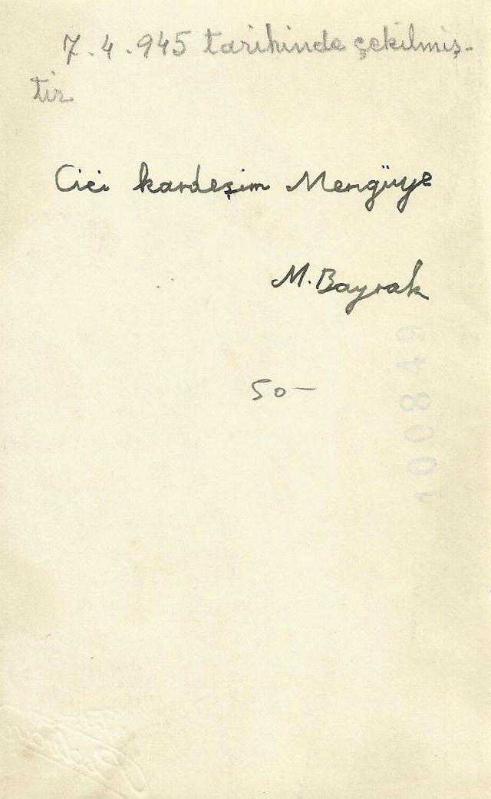 7.4.945 tarihinde çekilmiş-
tir
Cici kardeşim Mengüye
M. Bayrak
50-
100849